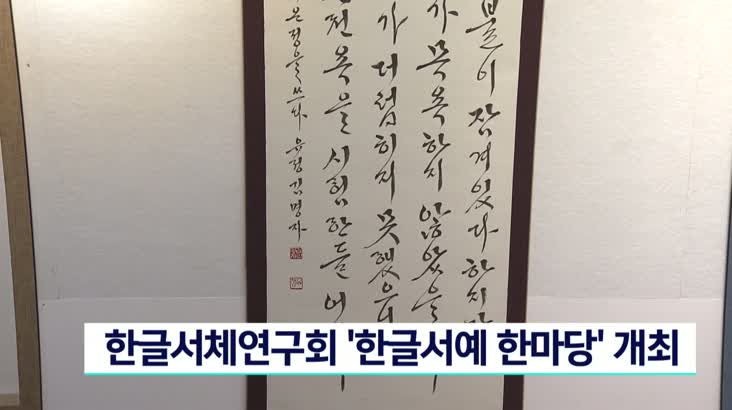 이 잠겨있다 하지
가 하지 않았을
가 더럽히지 못했
을 시험한들 어
을 쓰다 김명자
한글서체연구회 '한글서예 한마당' 개최